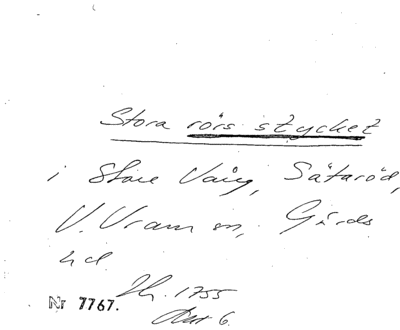 Stora rörs stycket
i Stora Vång, Sätaröd,
V. Vram sn, Gärds
hd.
Nr 7767. 1755
Akt 6.